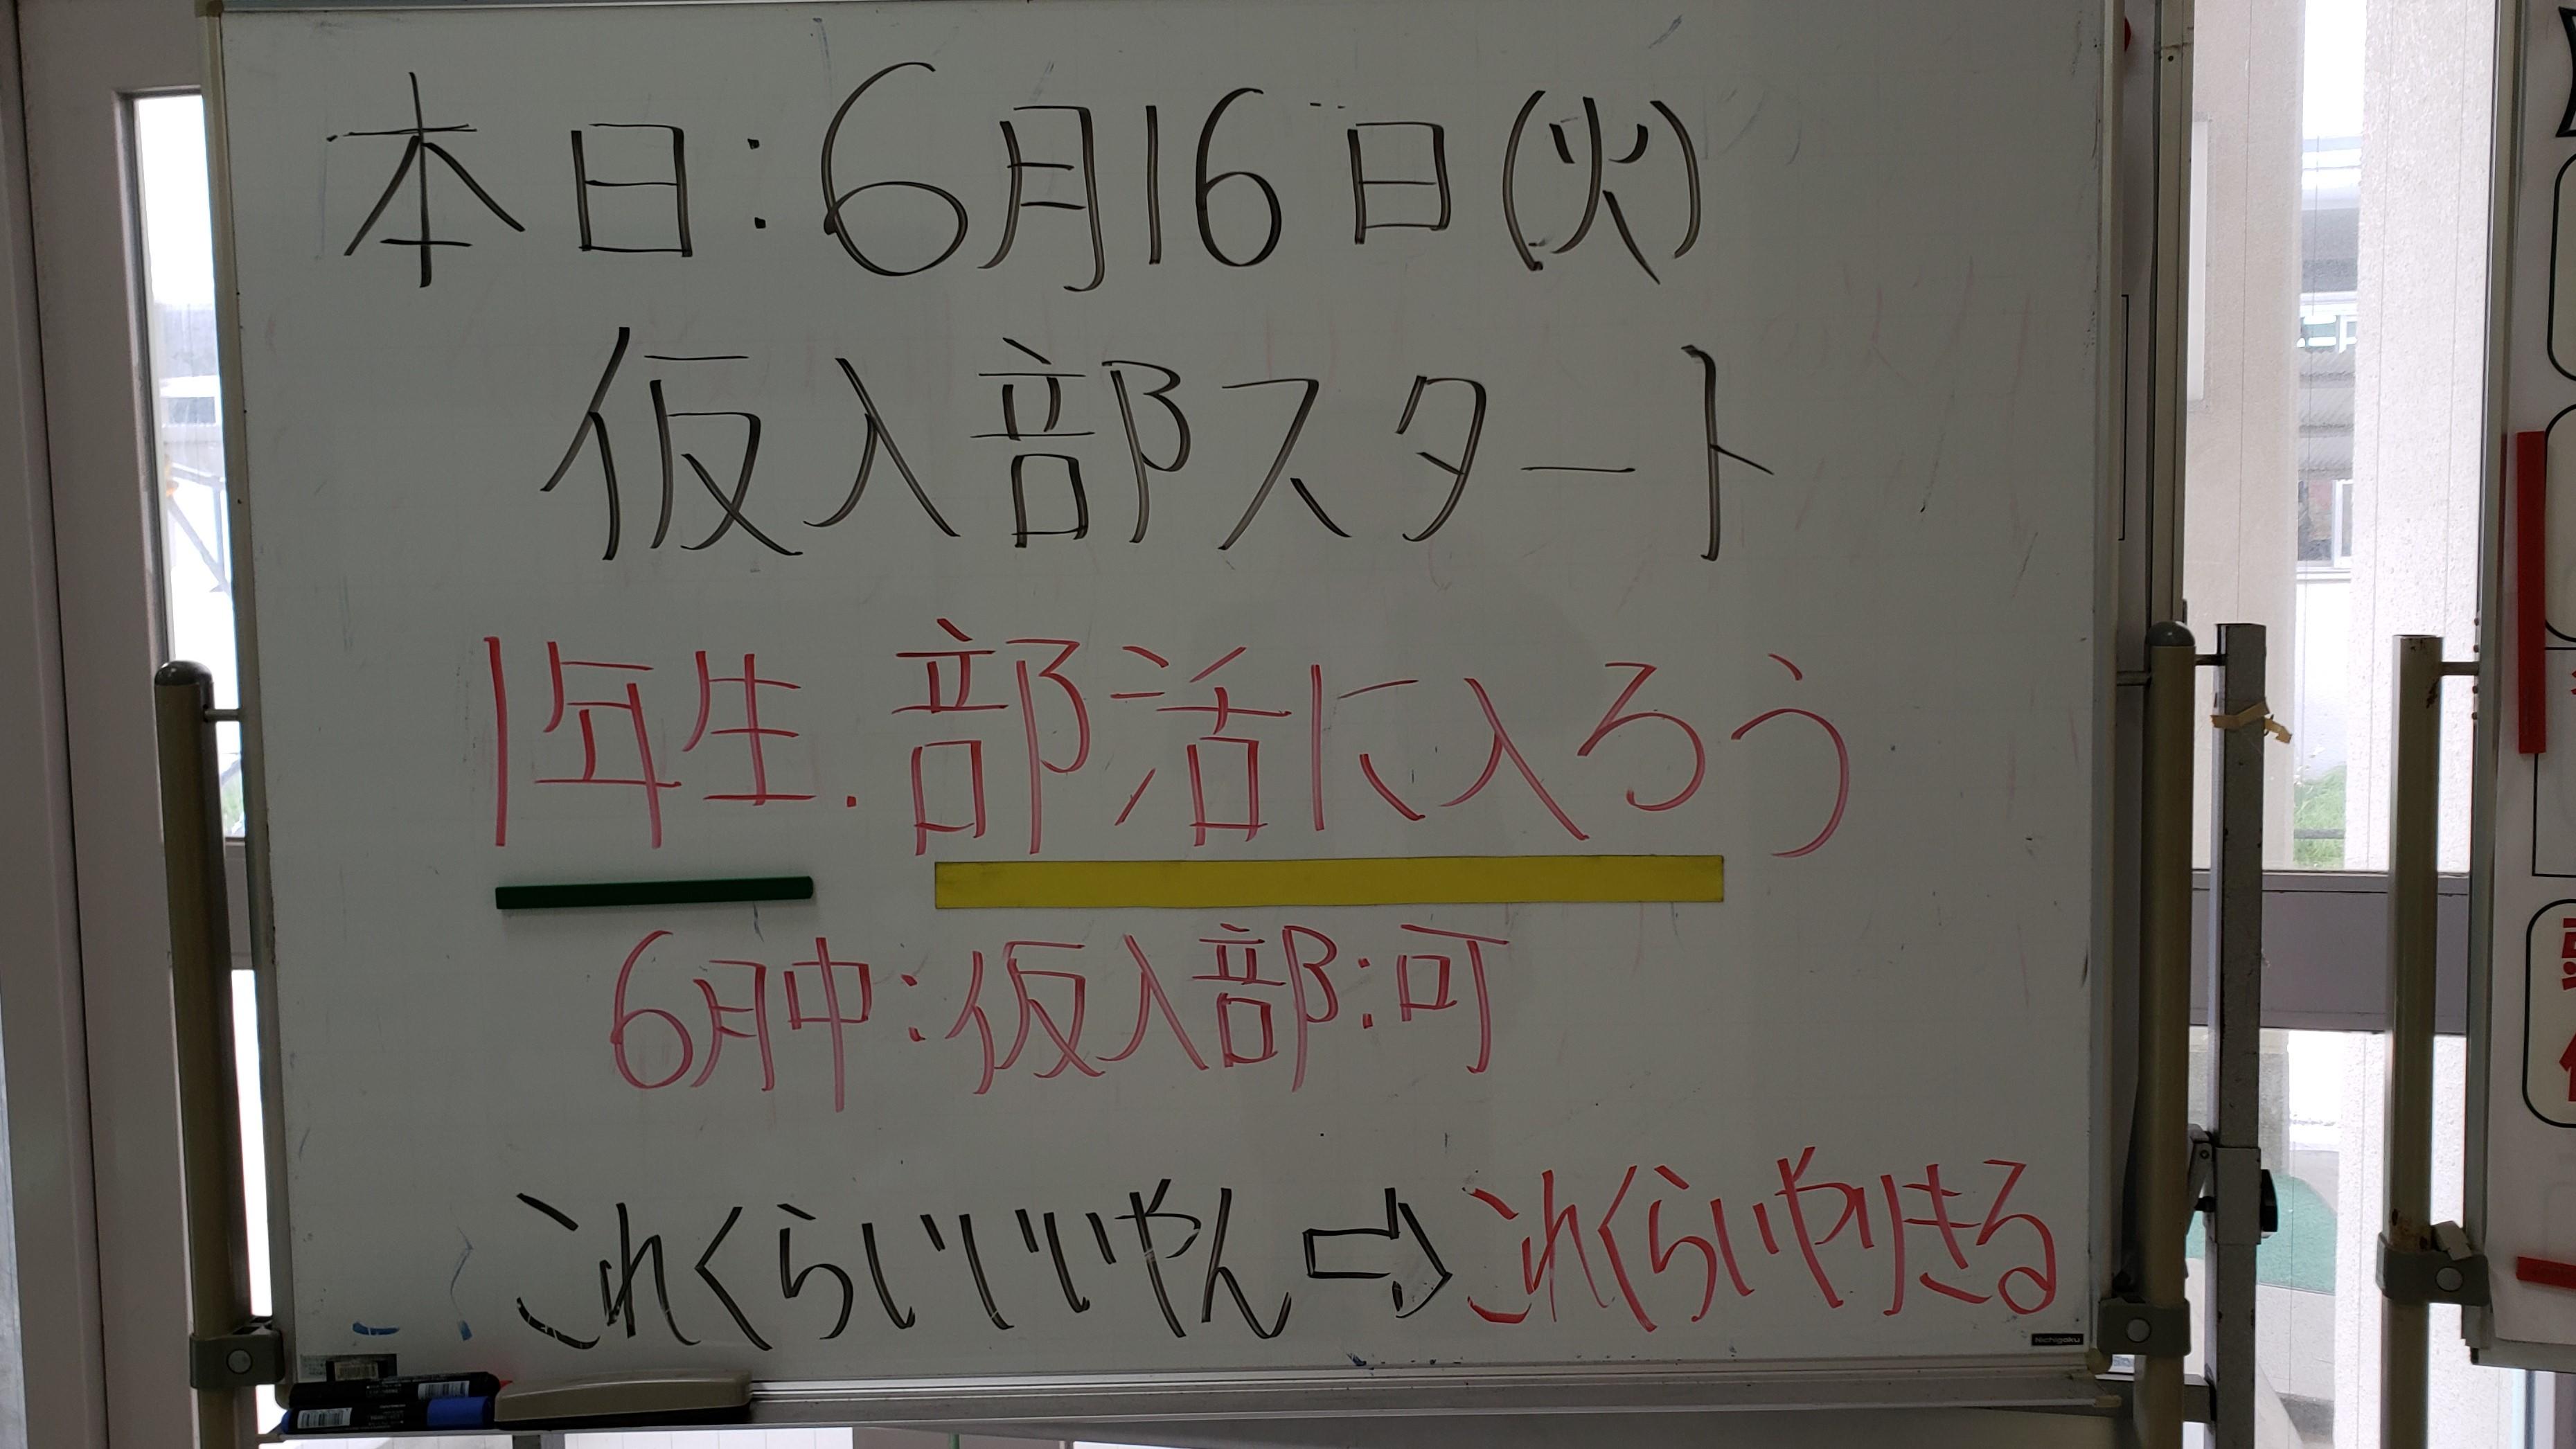 本日:6月16日(火)
仮入部スタート
1年生.部活に入ろう
6月中:仮入部:可
これくらいいいやん⇨これくらいやりきる
Nichigaku